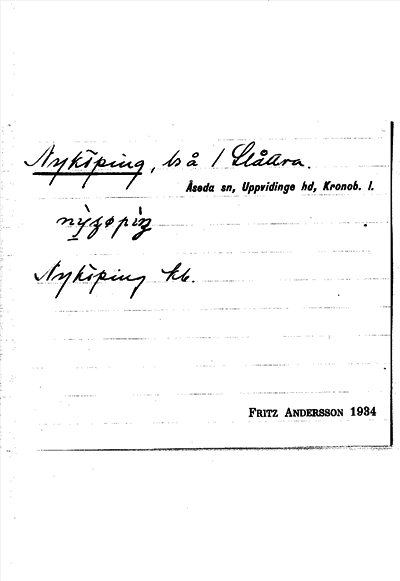 Nyköping, ls å 1 Slättra.
Åseda sn, Uppvidinge hd, Kronob. l.
Nyköping kb.
FRITZ ANDERSSON 1934